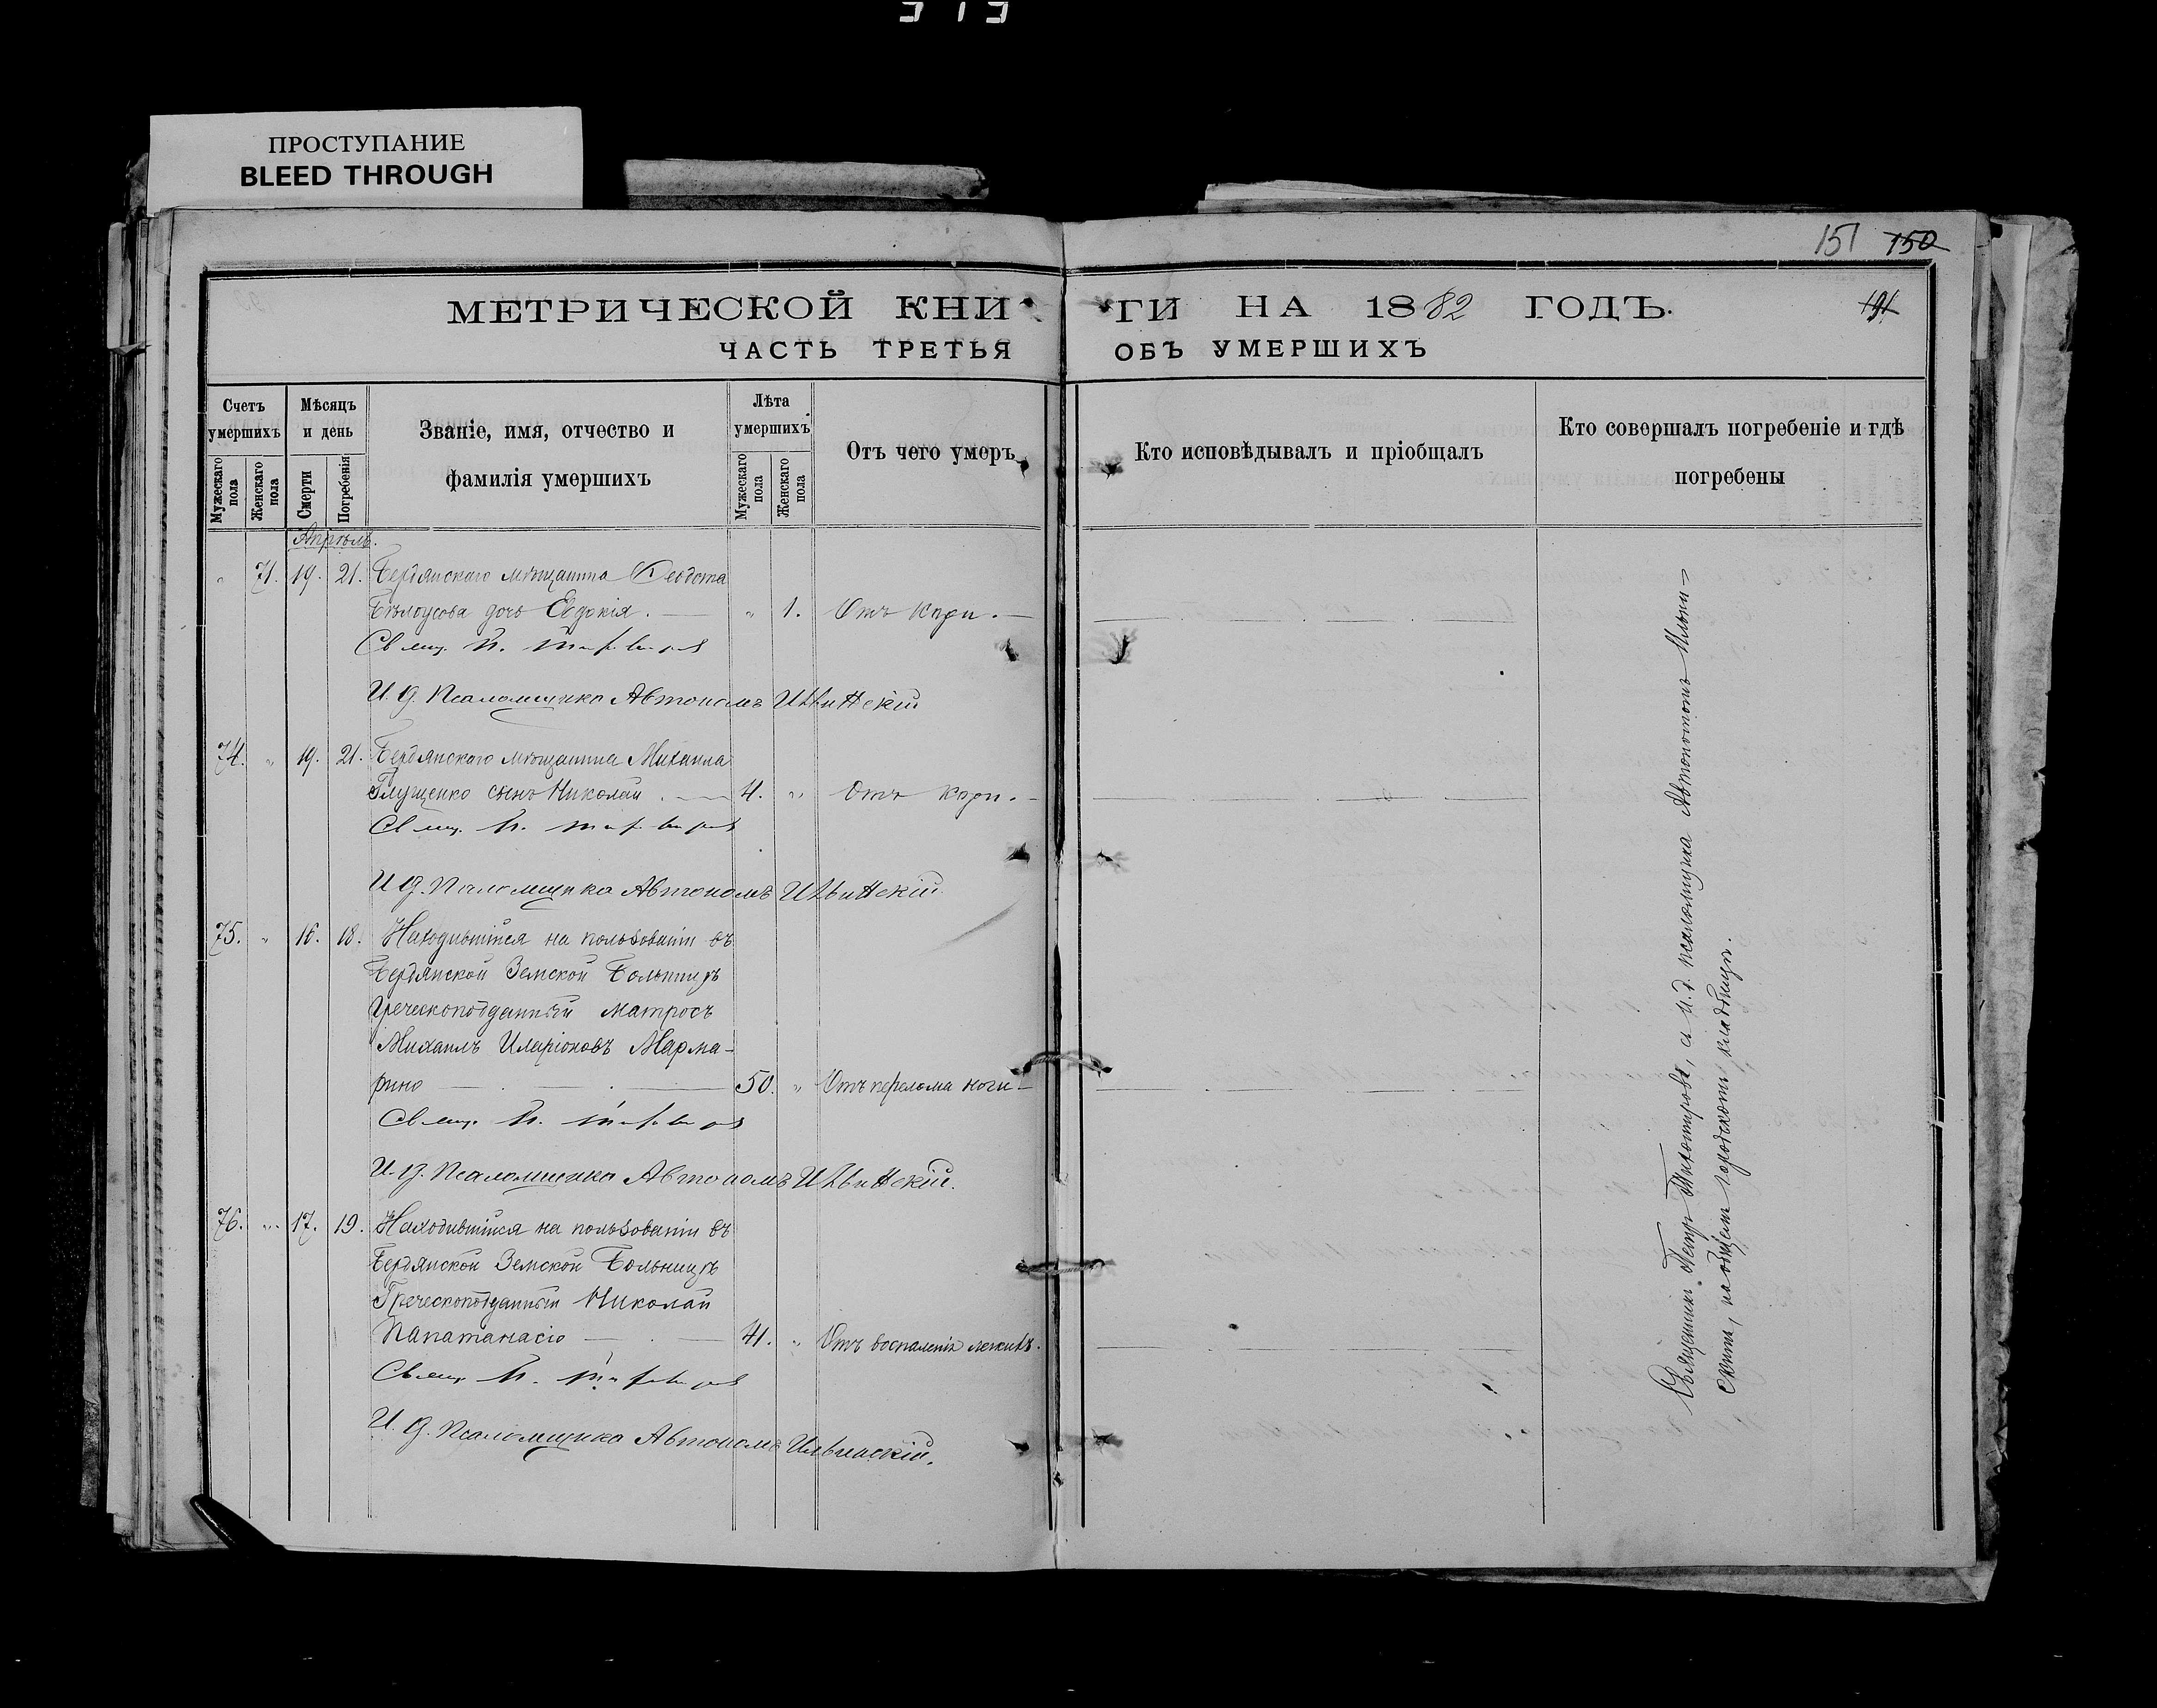 ПРОСТУПАНИЕ
BLEED THROUGH
151 150
МЕТРИЧЕСКОЙ КНИ
ГИ НА 1882 ГОДЪ.
191
ЧАСТЬ ТРЕТЬЯ
ОБЪ УМЕРШИХЪ
Счетъ умершихъ
Мужескаго пола
Женскаго пола
Мѣсяцъ и день
Смерти
Погребенія
Званіе, имя, отчество и
фамилія умершихъ
Лѣта умершихъ
Мужескаго пола
Женскаго пола
Отъ чего умеръ
Кто исповѣдывалъ и пріобщалъ
Кто совершалъ погребеніе и гдѣ
погребены
Апрѣль.
" 71. 19. 21. Бердянскаго мѣщанина Феодота
Бѣлоусова дочь Евдокія. — " 1. Отъ кори. —
Свящ. П.
И. д. Псаломщика Автономъ Ильинскій
74. " 19. 21. Бердянскаго мѣщанина Михаила
Глущенко сынъ Николай. — 4. " Отъ кори. —
Свящ. П.
И. д. Псаломщика Автономъ Ильинскій.
75. " 16. 18. Находившійся на пользованіи въ
Бердянской Земской Больницѣ
Греческоподданный матросъ
Михаилъ Иларіоновъ Марма-
рино — 50. " Отъ перелома ноги —
Свящ. П.
И. д. Псаломщика Автономъ Ильинскій.
76. " 17. 19. Находившійся на пользованіи въ
Бердянской Земской Больницѣ
Греческоподданный Николай
Папатанасіо — 41. " Отъ воспаленія легкихъ.
Свящ. П.
И. д. Псаломщика Автономъ Ильинскій.
Священникъ Петръ Тихомировъ, съ и. д. псаломщика Автономомъ Ильин-
скимъ, на общемъ городскомъ кладбищѣ.